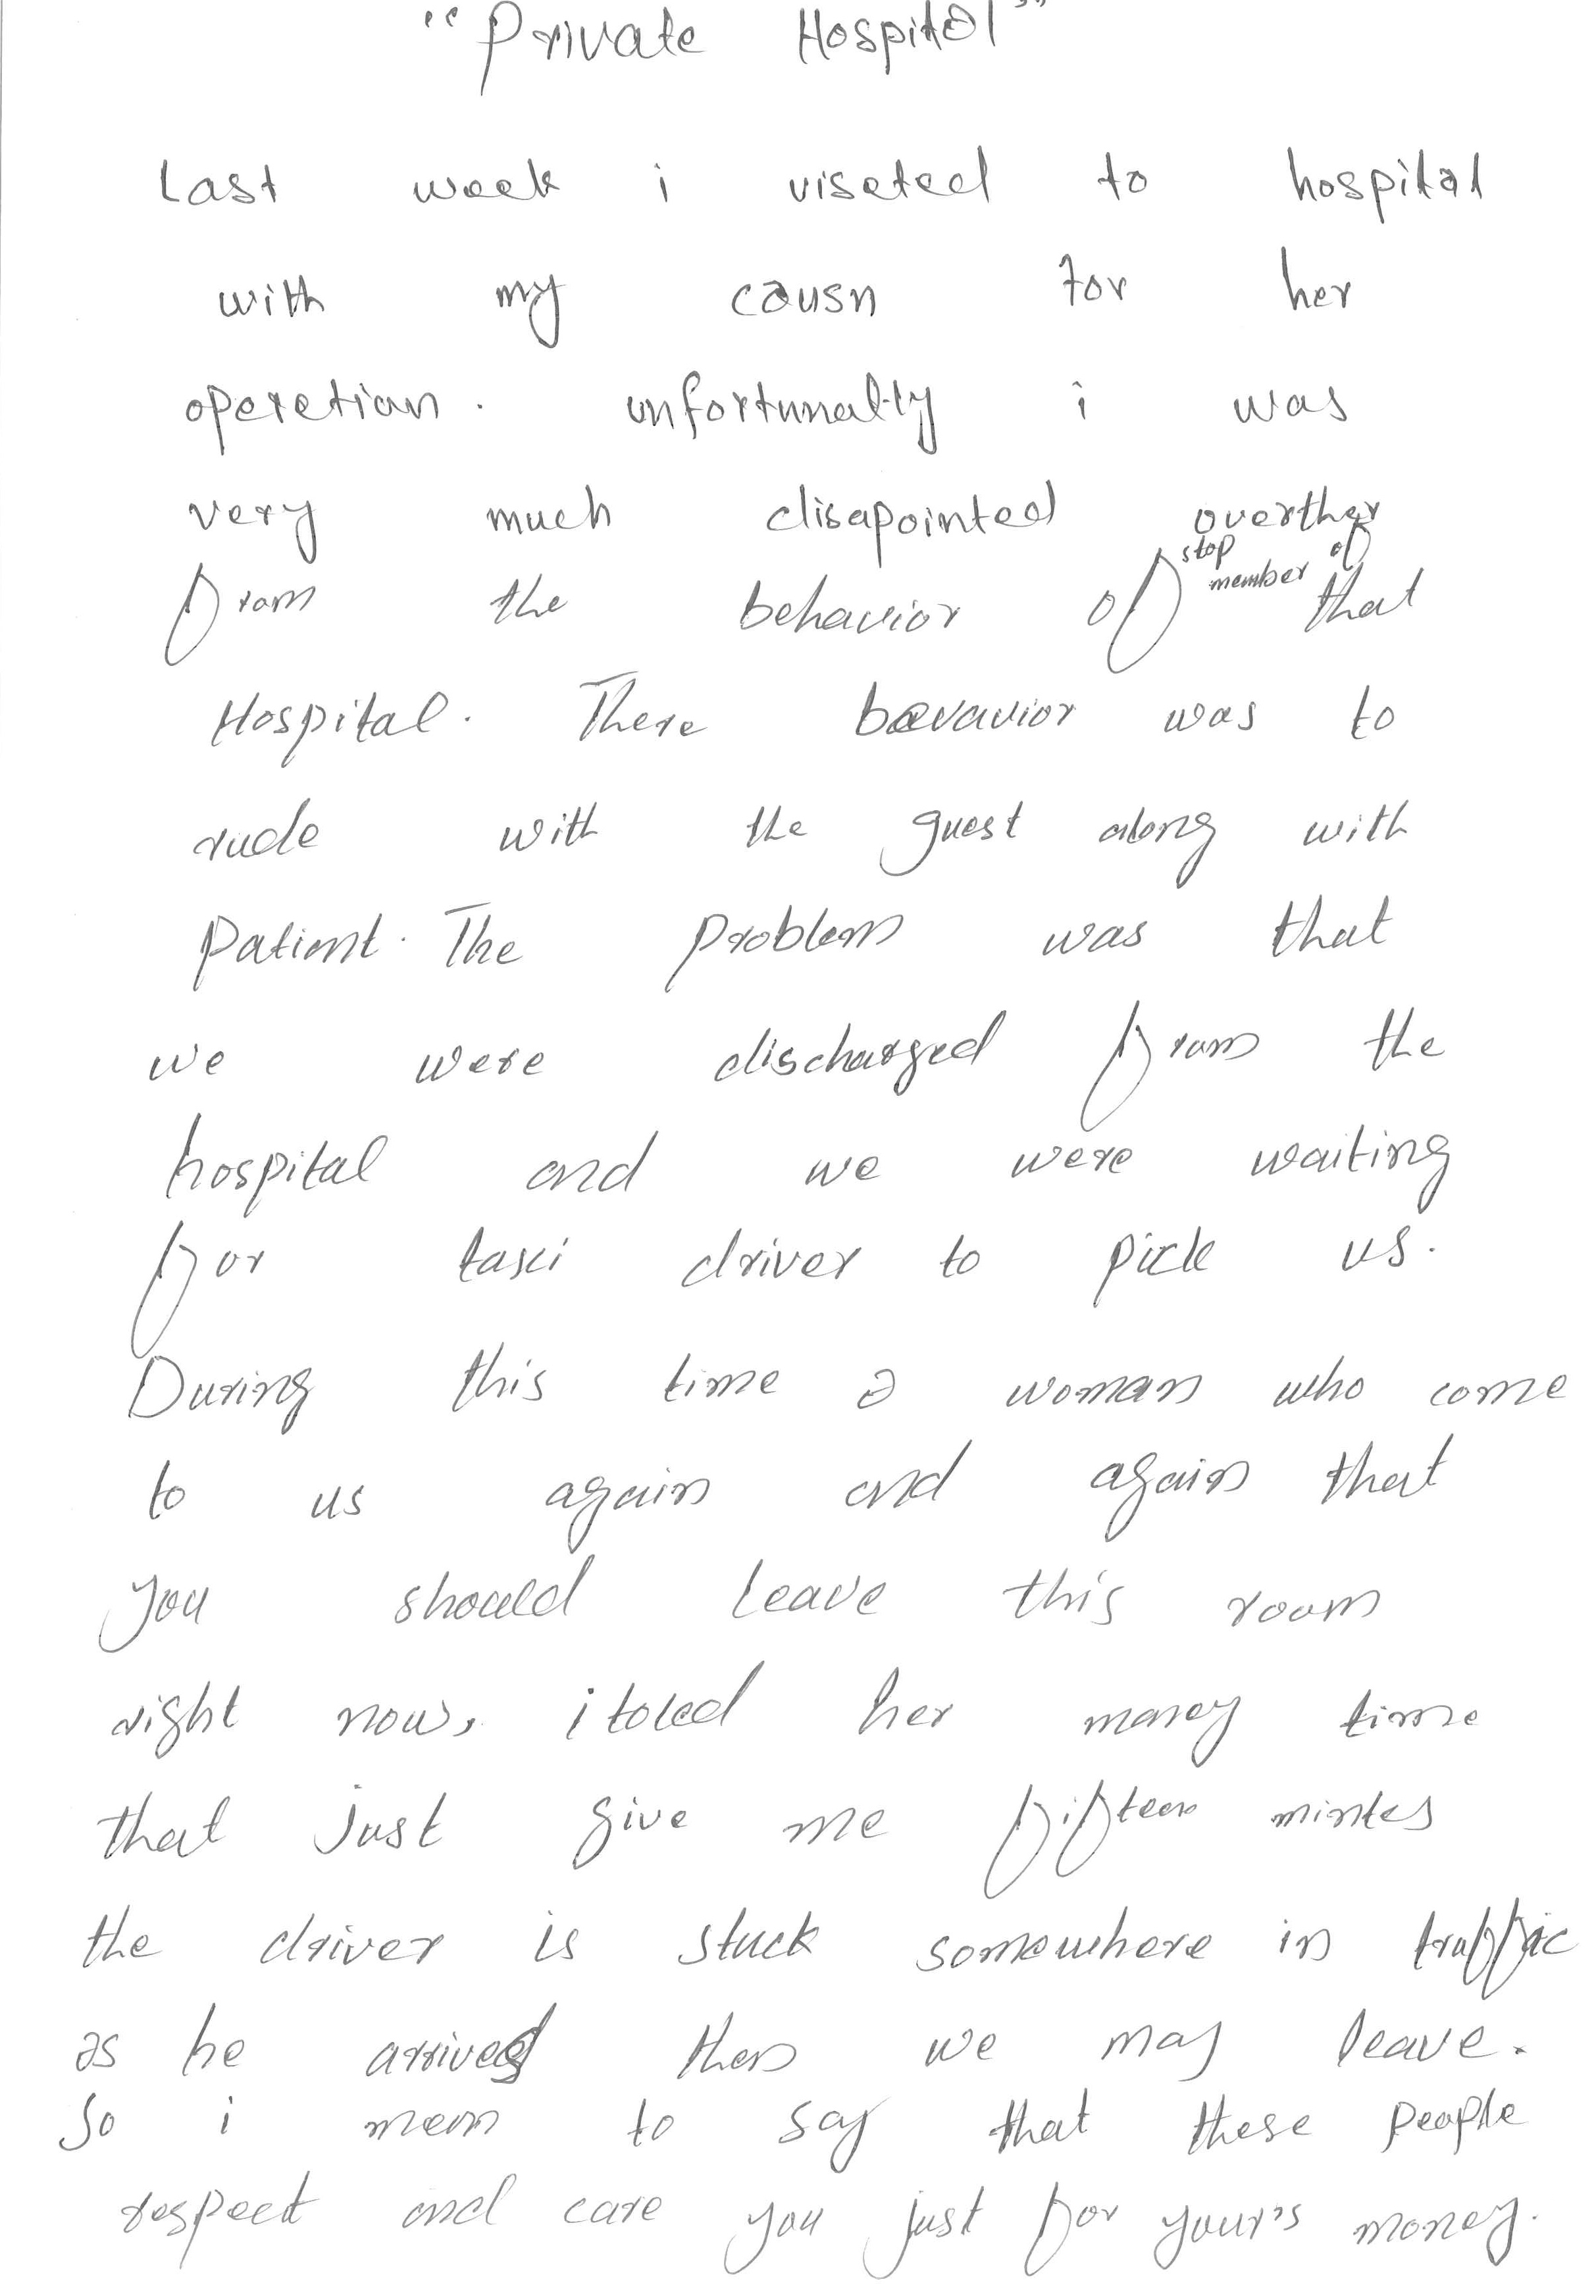 "Private Hospital"
Last week i viseted to hospital
with my causn for her
operetian. unfortunally i was
very much disapointed overther
stop of
member
from the behavior of that
Hospital. There bevavior was to
rude with the guest along with
Patient. The Problem was that
we were discharged from the
hospital and we were waiting
for taxi driver to pick us.
During this time a woman who come
to us again and again that
you should leave this room
right now, i toled her maney time
that just give me fifteen mintes
the driver is stuck somewhere in traffic
as he arrived then we may leave.
So i mean to say that these people
respect and care you just for your's money.